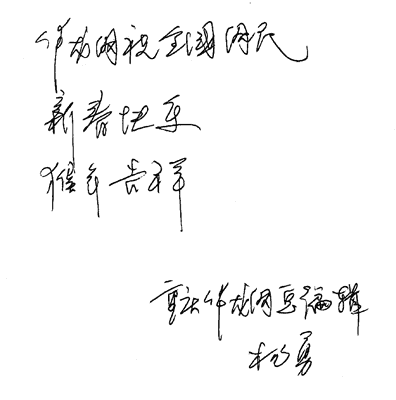 华龙网祝全国网民
新春快乐
猴年吉祥
重庆华龙网总编辑
杨勇